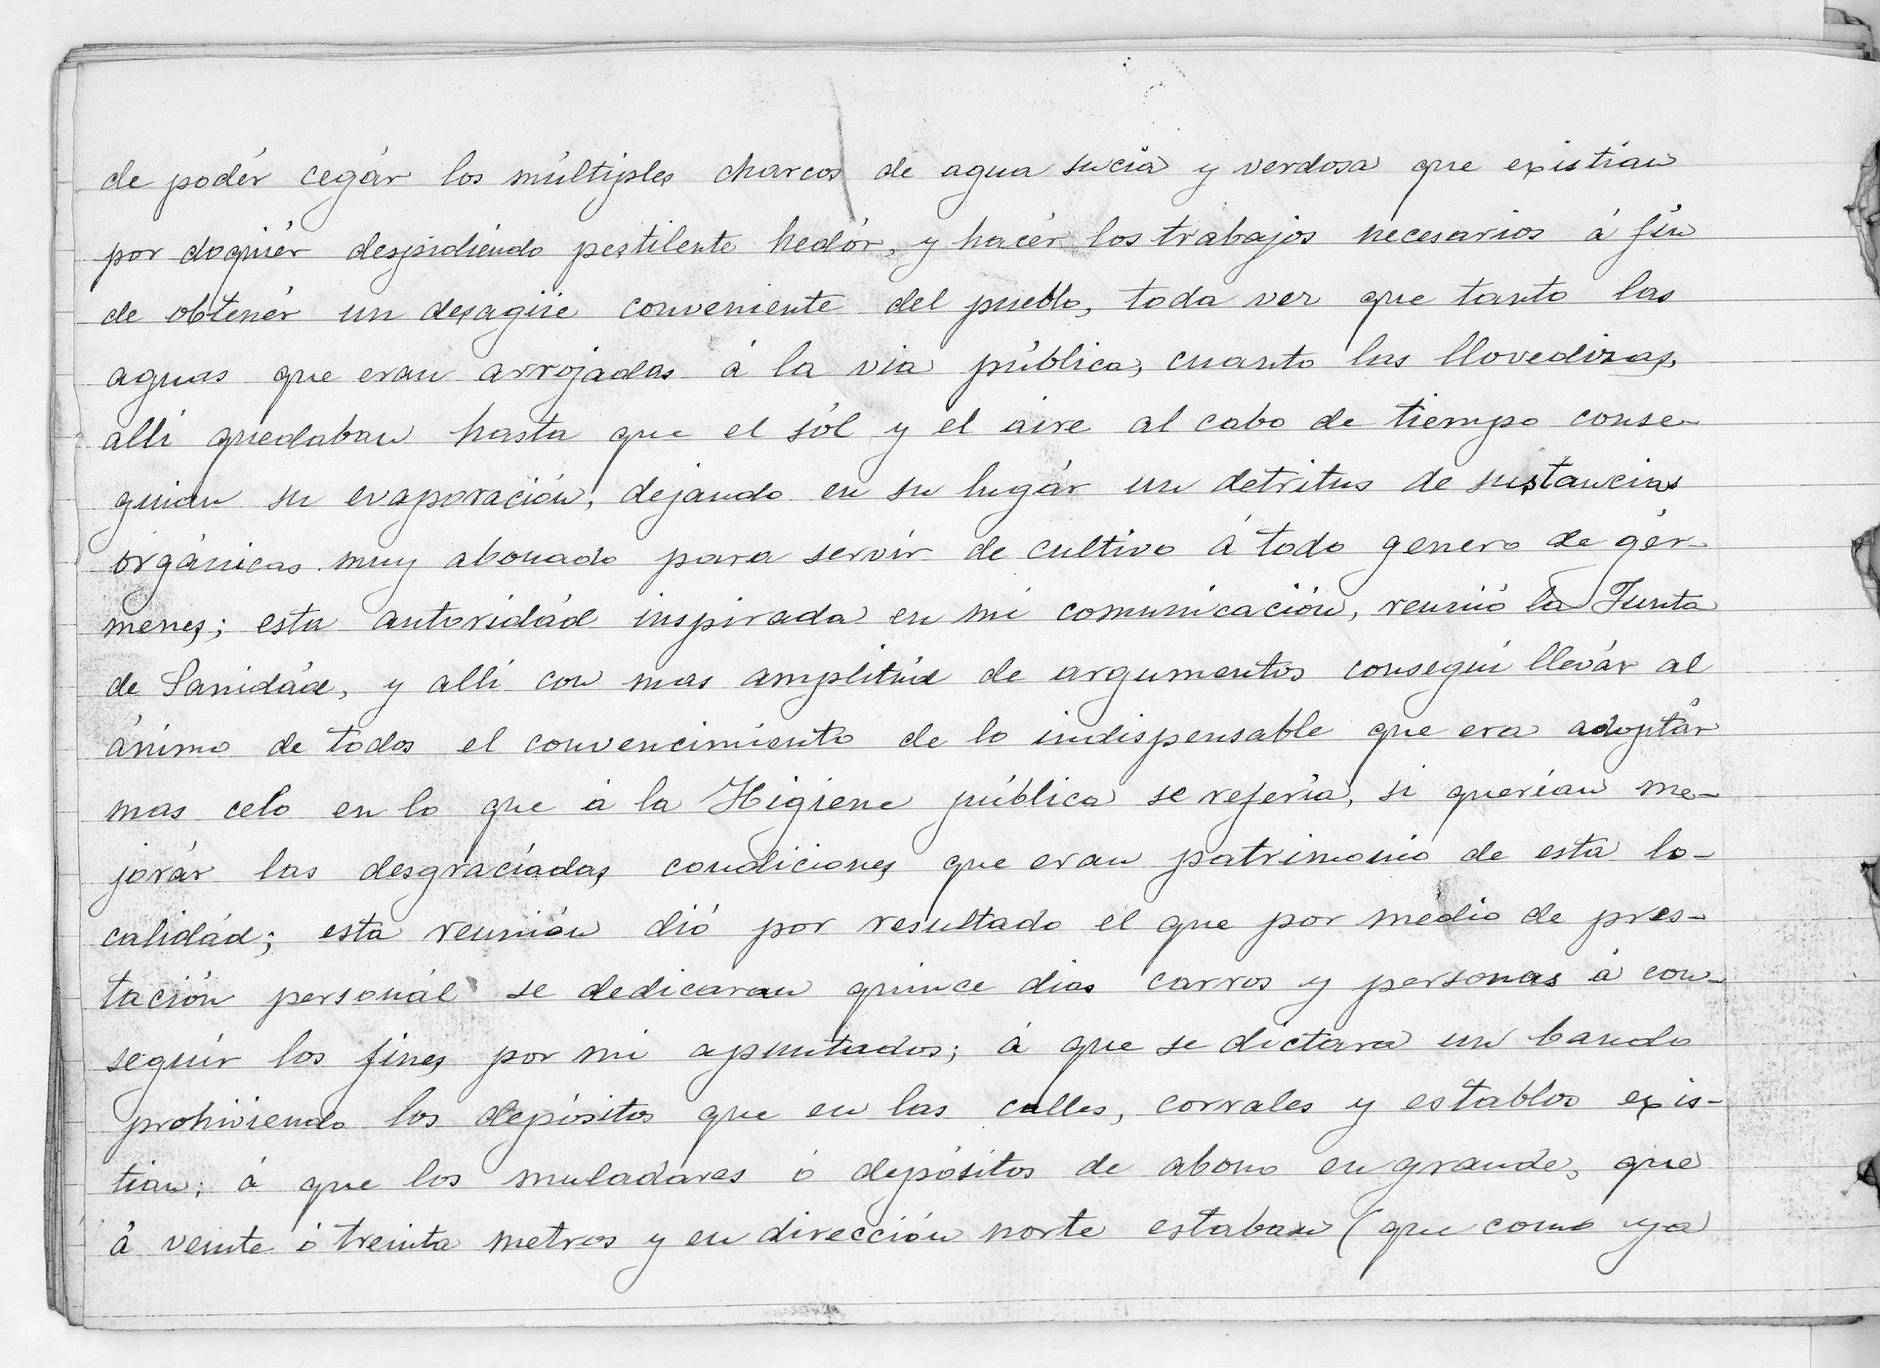 de podér cegár los múltiples charcos de agua sucia y verdosa que existian
por doquiér despidiéndo pestilente hedór, y hacér los trabajos necesarios á fin
de obtenér un desagüe conveniente del pueblo, toda vez que tanto las
aguas que eran arrojadas á la via pública, cuanto las llovedizas,
allí quedaban hasta que el sól y el aire al cabo de tiempo conse-
guian su evaporación, dejando en su lugár un detritus de sustancias
orgánicas muy abonado para servir de cultivo á todo genero de gér-
menes; esta autoridád inspirada en mi comunicación, reunió la Junta
de Sanidád, y allí con mas amplitúd de argumentos conseguí llevár al
ánimo de todos el convencimiento de lo indispensable que era adoptár
mas celo en lo que á la Higiene pública se refería, si querían me-
jorár las desgraciadas condiciones que eran patrimonio de esta lo-
calidád; esta reunión dió por resultado el que por médio de pres-
tación personál se dedicaran quince dias carros y personas á con-
seguir los fines por mi apuntados; á que se dictara un bando
prohiviendo los depósitos que en las calles, corrales y establos exis-
tian; á que los muladares ó depósitos de abono en grande, que
á veinte ó treinta metros y en dirección norte estaban (que como ya